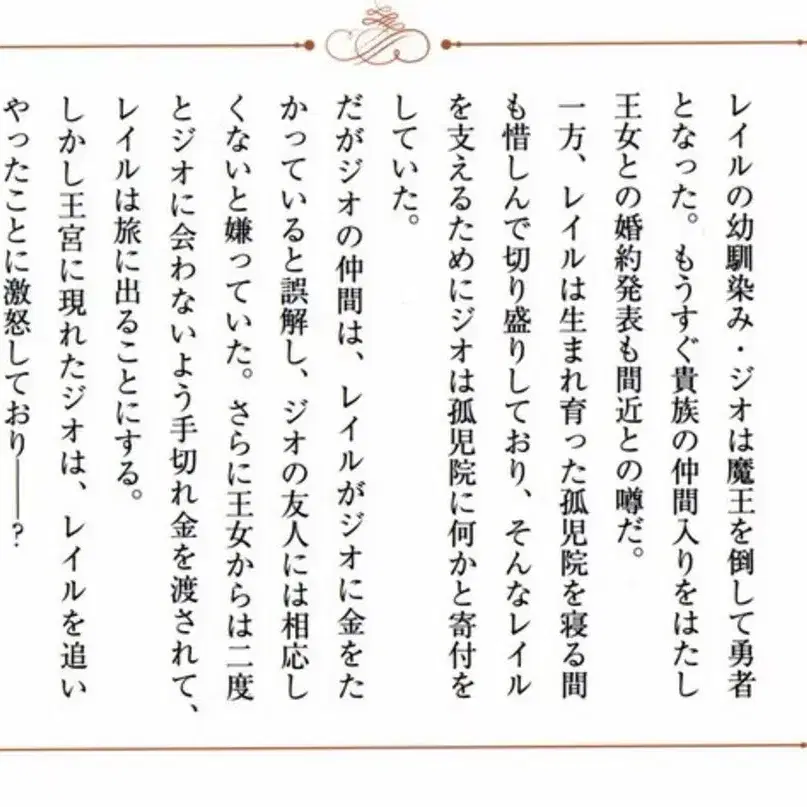 レイルの幼馴染み・ジオは魔王を倒して勇者
となった。もうすぐ貴族の仲間入りをはたし
王女との婚約発表も間近との噂だ。
一方、レイルは生まれ育った孤児院を寝る間
も惜しんで切り盛りしており、そんなレイル
を支えるためにジオは孤児院に何かと寄付を
していた。
だがジオの仲間は、レイルがジオに金をた
かっていると誤解し、ジオの友人には相応し
くないと嫌っていた。さらに王女からは二度
とジオに会わないよう手切れ金を渡されて、
レイルは旅に出ることにする。
しかし王宮に現れたジオは、レイルを追い
やったことに激怒しており――?